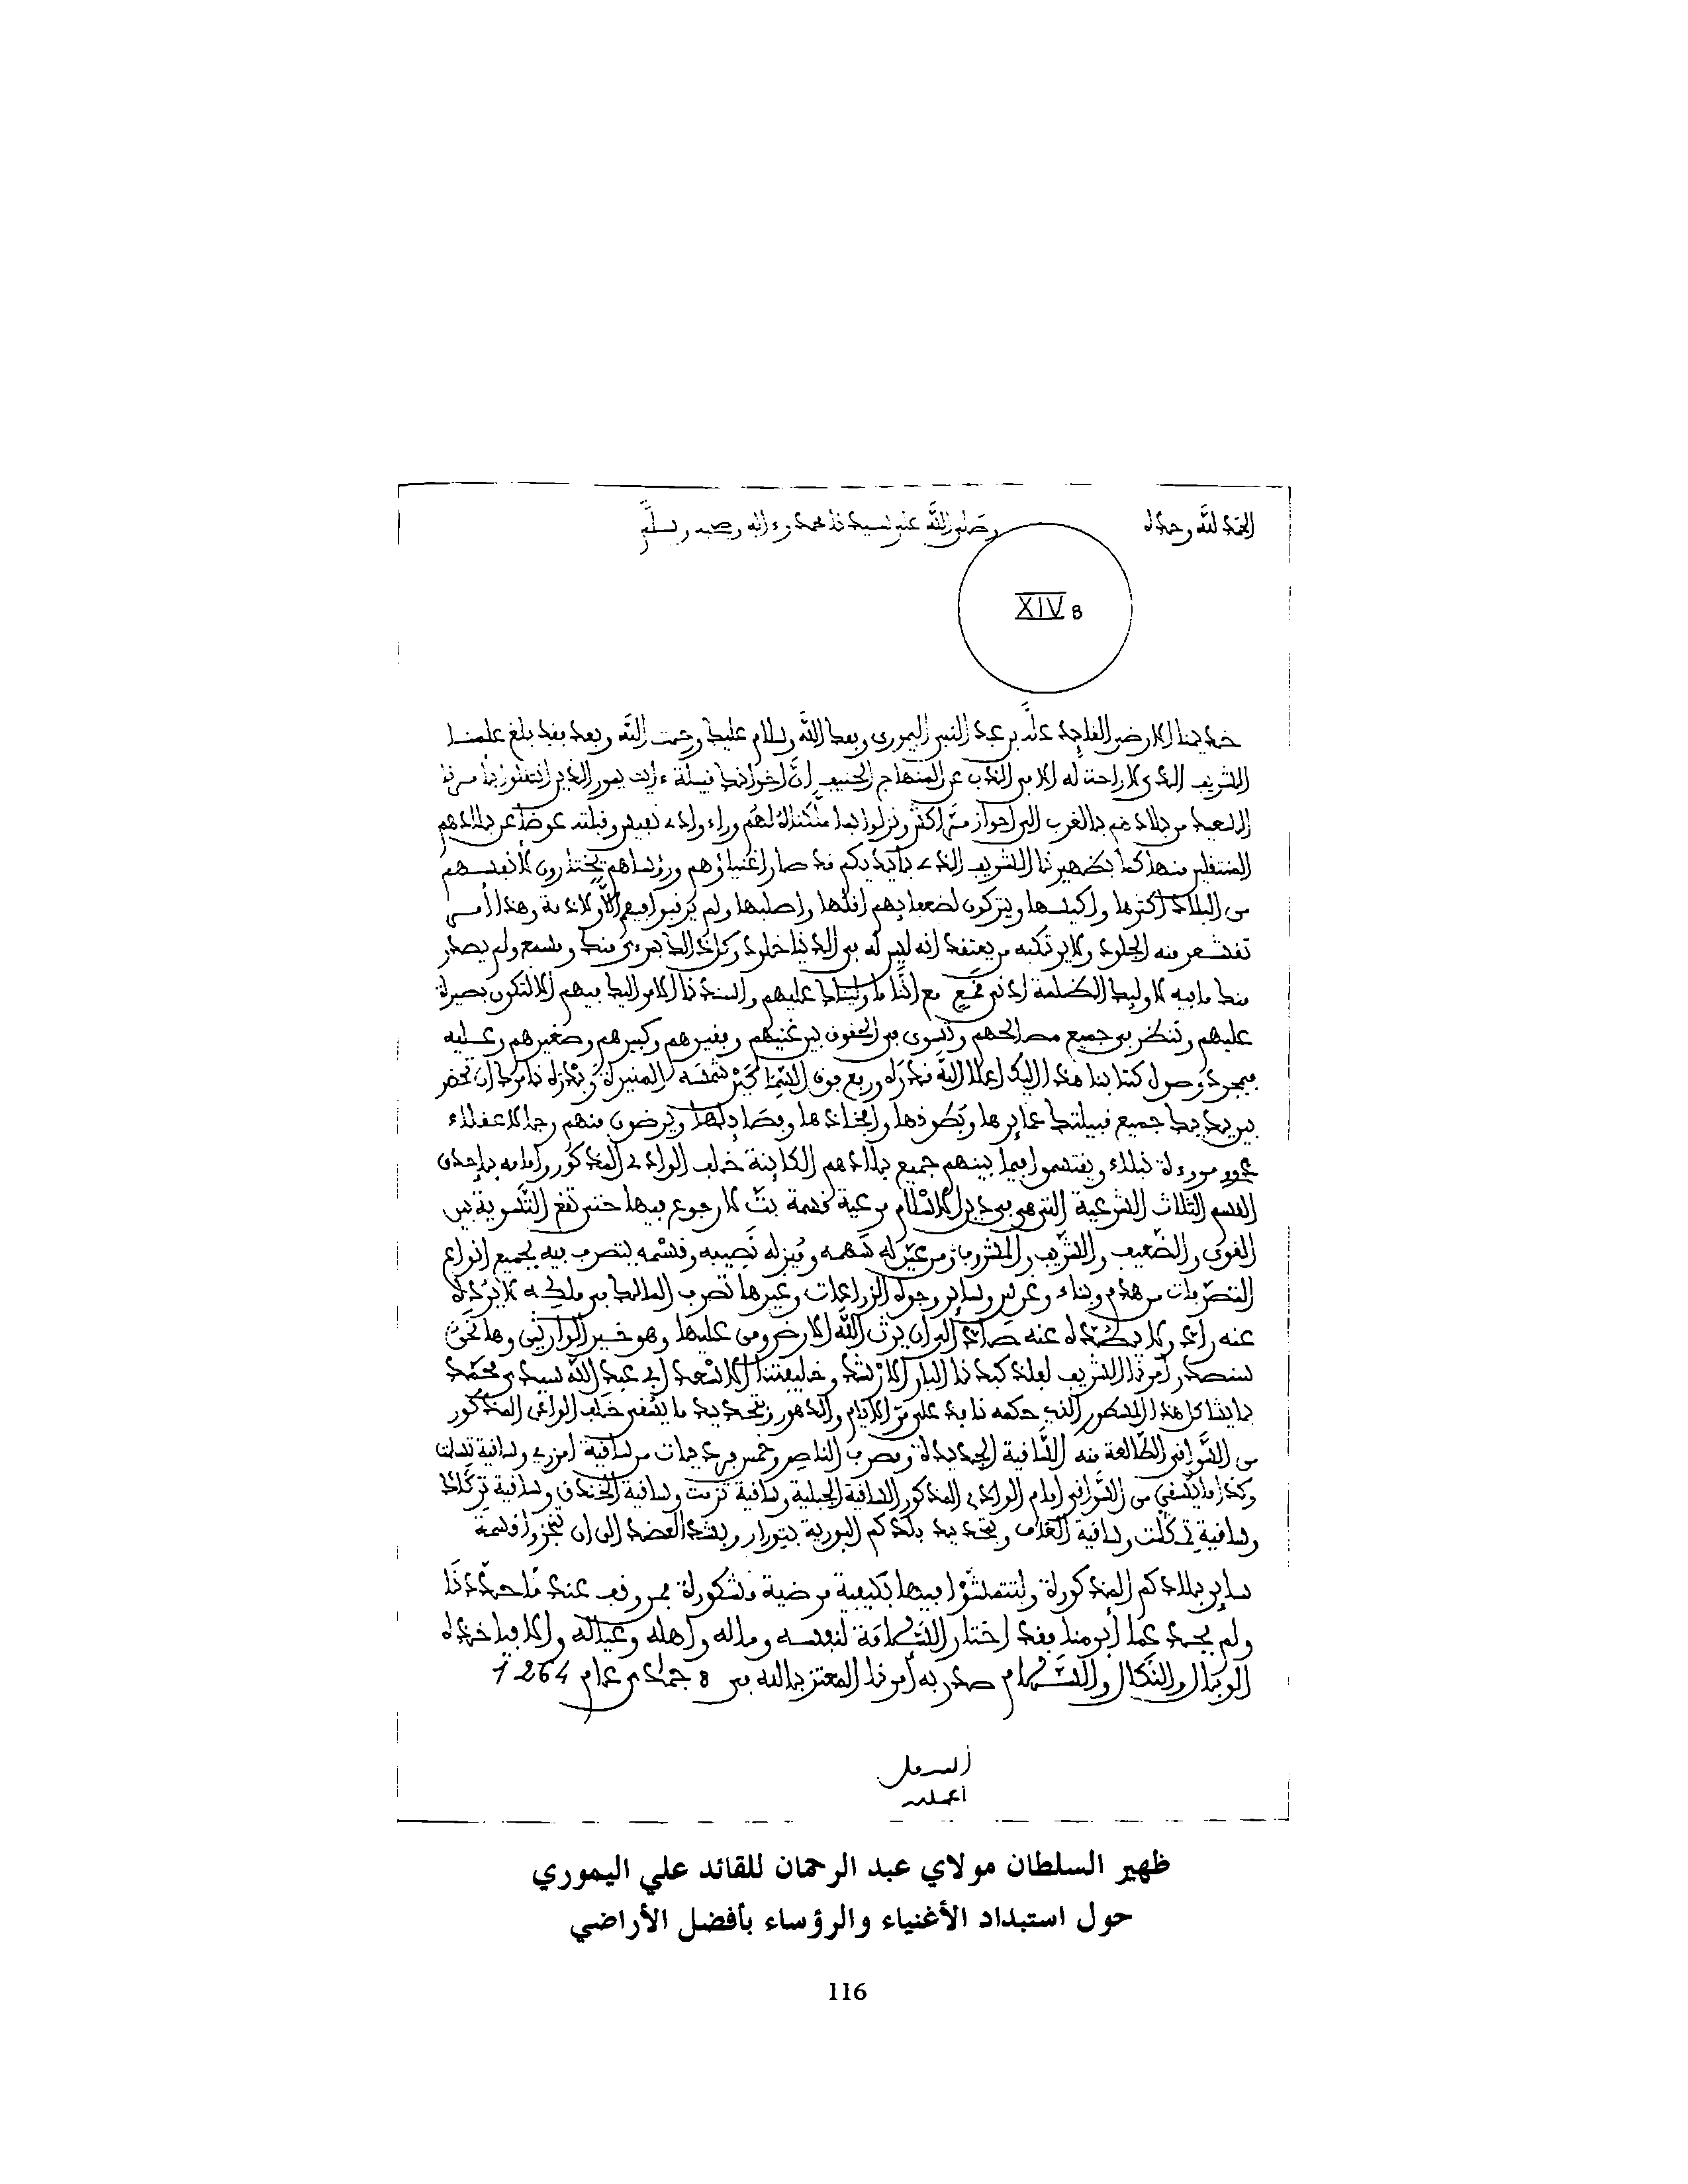 الحمد لله وحده
وصلى الله على سيدنا محمد وءاله وصحبه وسلم
XIV B
خديمنا الارضى القايد علي بن عبد النبي اليموري وبعد الله وسلام عليك ورحمت الله وبعد فقد بلغ علمنا
الشريف الذي لا راحة له الا في الذب عن المنهاج الحنيف ان اخوانك قبيلة ءايت يمور الذين انتقلوا بامرنا
السعيد من بلادهم بالغرب الى احواز مراكش ونزلوا بما ملكناه لهم وراء وادي نفيس وقبلته عوضا عن بلادهم
المنتقلين منها كما بظهيرنا الشريف الذي بأيديكم قد صار اغنياؤهم ورؤساهم يختارون لانفسهم
من البلاد اكثرها واكيسها ويتركون لضعفايهم اقلها واصلبها ولم يرقبوا فيهم الا ولا ذمة وهذا أمر
تقشعر منه الجلود ولا يرتكبه من يعتقد انه ليس له في الدنيا خلود وكل ذالك بمرءى منك ومسمع ولم يصدر
منك ما فيه لاوليك الظلمة ادنى قمع مع اننا ما وليناك عليهم واسندنا الامر اليك فيهم الا لتكون بصيرة
عليهم وتنظر في جميع مصالحهم وتسوى في الحقوق بين غنيهم وفقيرهم وكبيرهم وصغيرهم وعليه
فبمجرد وصول كتابنا هذا اليك اعلا الله قدره ورفع فوق السما خير شمسه المنيرة وبدره نامرك ان تحضر
بين يديك جميع قبيلتك عمايرها وبطونها وافخاذها وفصايلها ويرضون منهم رجالا عقلاء
ذوو مروءة نبلاء ويقتسموا فيما بينهم جميع بلادهم الكاينة خلف الوادي المذكور وامامه بإحدى
القسم الثلاث الشرعية التي هي في دين الاسلام مرعية قسمة بت لا رجوع فيها حتى تقع التسوية بين
القوى والضعيف والشريف والمشروف ومن عين له سهمه وميز له نصيبه وقسمه يتصرف فيه بجميع انواع
التصرفات من هدم وبناء وغرس وساير وجوه الزراعات وغيرها تصرف المالك في ملكه لا يرده
عنه راد ولا يصده عنه صاد الى ان يرث الله الارض ومن عليها وهو خير الوارثين وها نحن
سنصدر أمرنا الشريف لفلذ كبدنا البار الارشد وخليفتنا الاسعد ابي عبد الله سيدي محمد
بما يشاكل هذا المسطور الذي حكمه نافذ على مر الايام والدهور وتحديد ما يسقى خلف الوادي المذكور
من السواقي الطالعة منه الساقية الجديدة ومصرف الناصر وخمس فرديات من ساقية امزري وساقية تسلت
وكذا ما يسقي من السواقي امام الوادي المذكور الساقية الجبلية وساقية تزمت وساقية الخندق وساقية تركلاط
وساقية تكلت وساقية الغلاف وبتحديد بلادكم البورية بتورار وبشد العضد الى ان تنجزوا قسمة
ساير بلادكم المذكورة ولتتمشوا فيها بكيفية مرضية مشكورة فمن وقف عند ما حددنا
ولم يحد عما أبرمنا فقد اختار السلامة لنفسه وماله واهله وعياله والا فياخذه
الوبال والنكال والسلام صدر به أمرنا المعتز بالله في 8 جمادى عام 1264
ظهير السلطان مولاي عبد الرحمان للقائد علي اليموري
حول استبداد الأغنياء والرؤساء بأفضل الأراضي
116